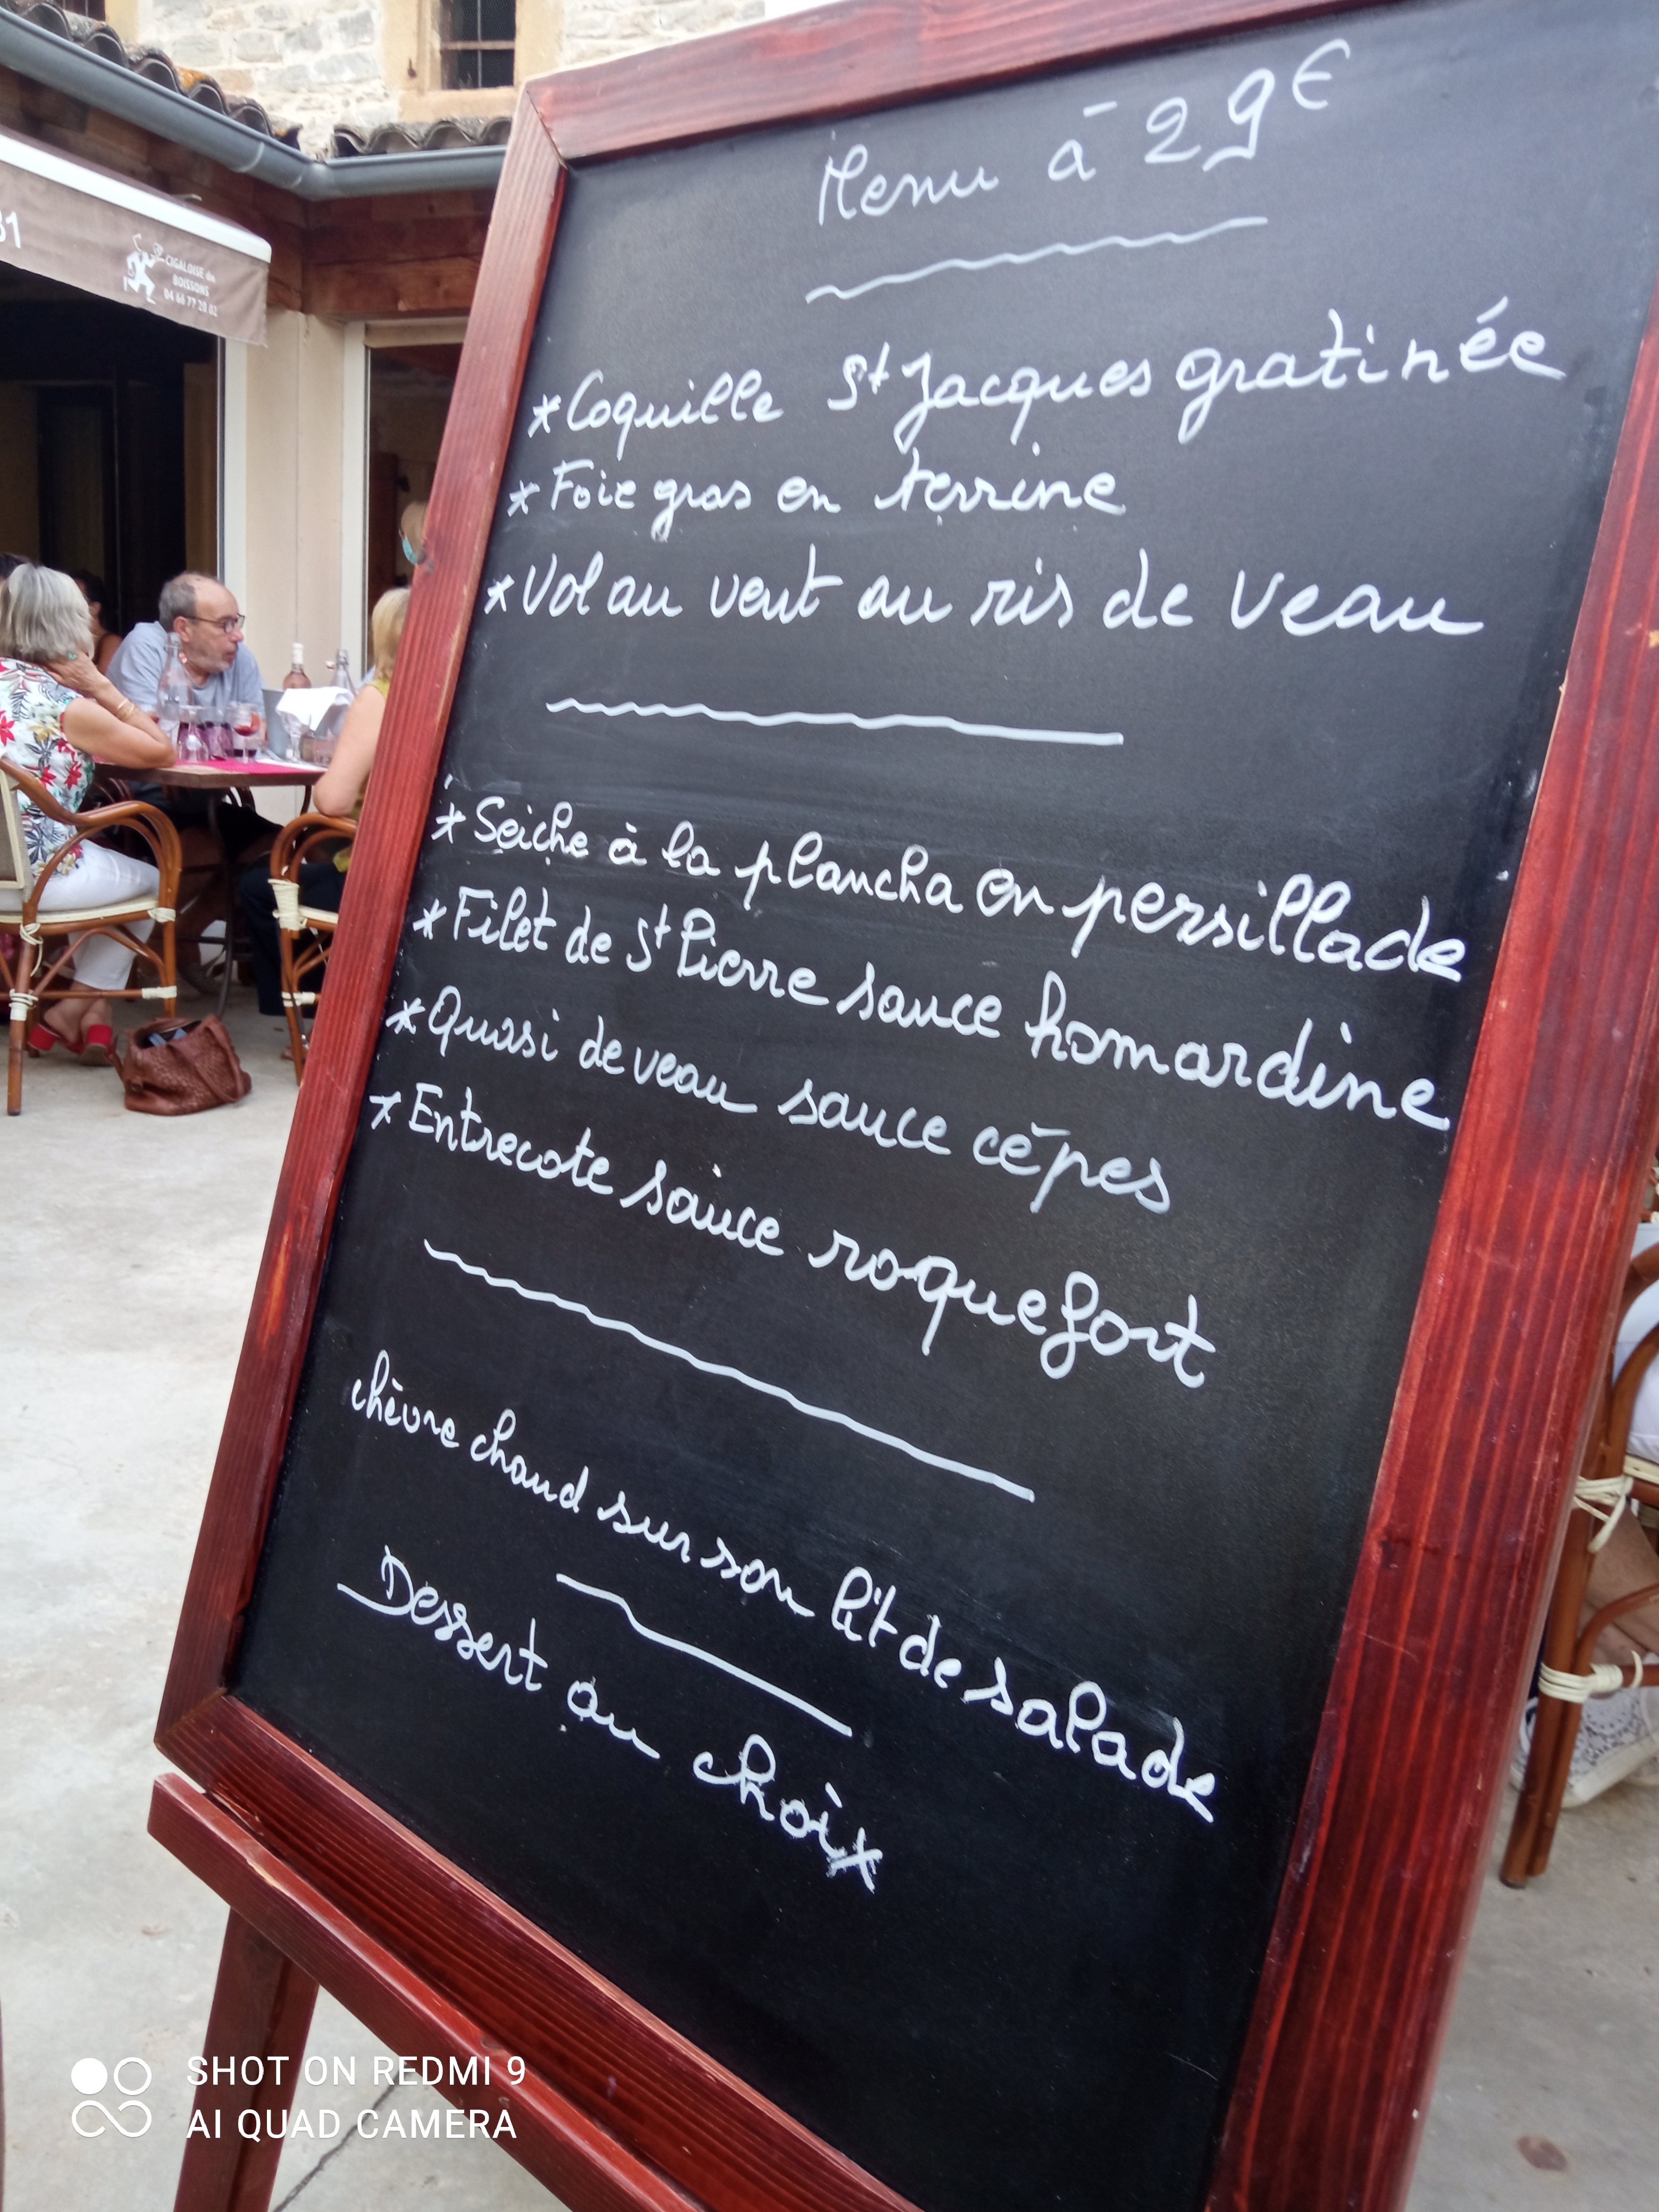 Menu à 29€
*Coquille St Jacques gratinée
*Foie gras en terrine
*Vol au vent au ris de veau
*Seiche à la plancha en persillade
*Filet de St Pierre sauce homardine
*Quasi de veau sauce cêpes
*Entrecote sauce roquefort
chèvre chaud sur son lit de salade
Dessert au choix
31
CIGALOISE de
BOISSONS
04 66 77 20 02
SHOT ON REDMI 9
AI QUAD CAMERA